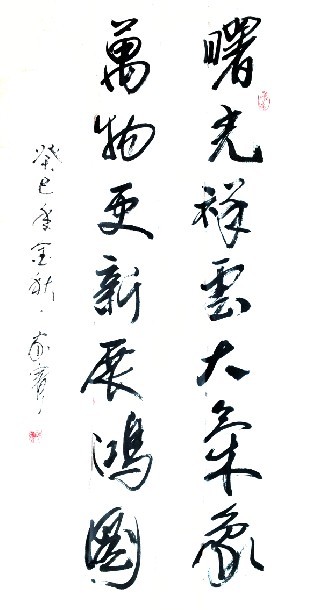 曙光祥雲大氣象
萬物更新展鴻圖
癸巳年金秋